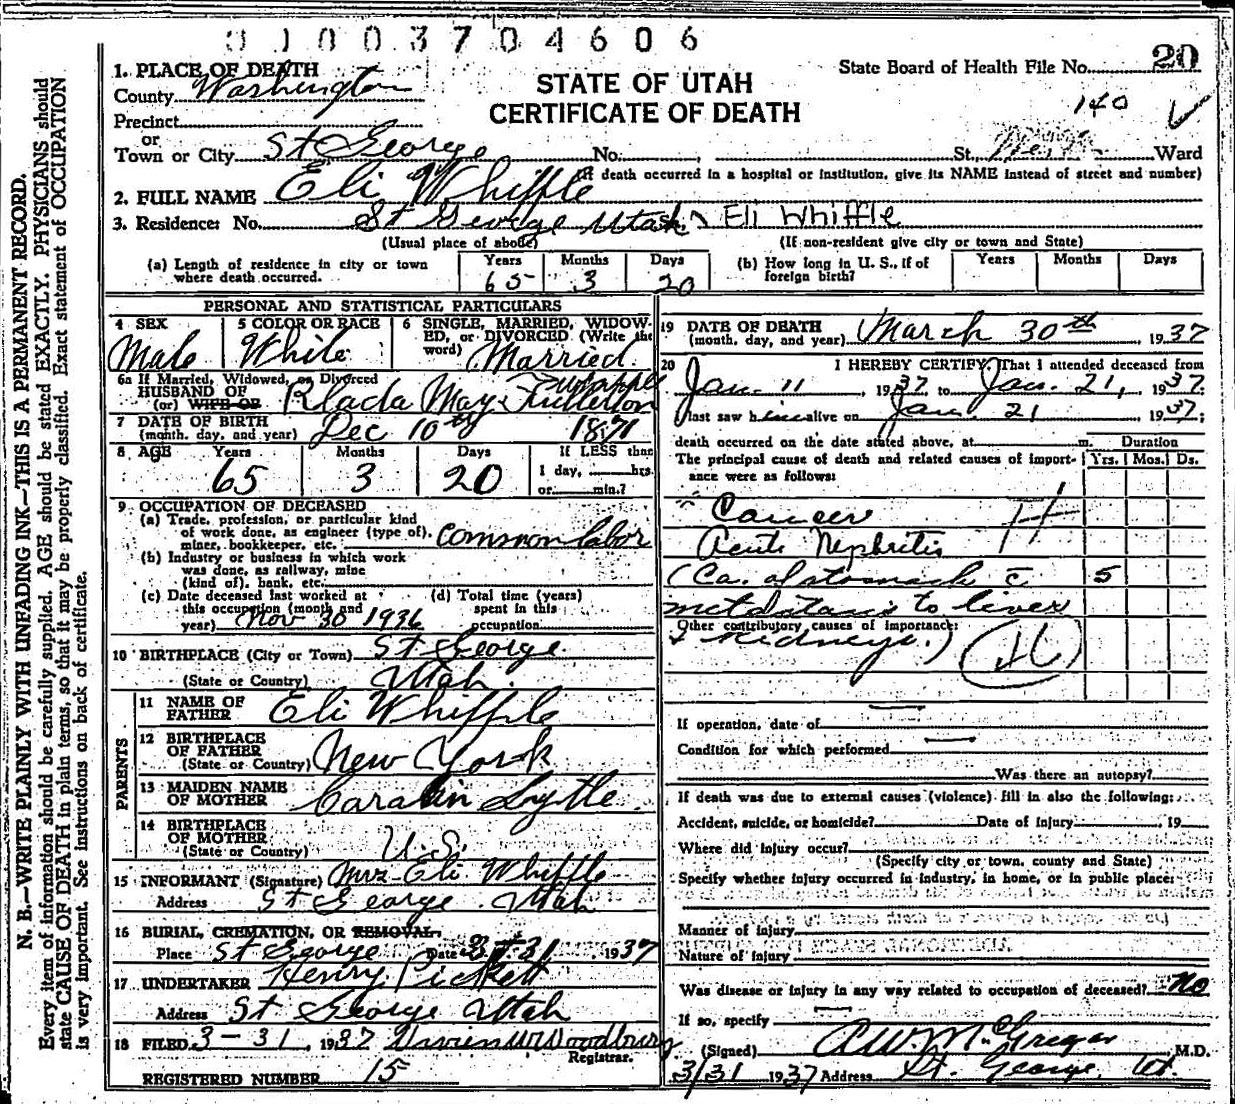 01003704606
20
1. PLACE OF DEATH
STATE OF UTAH
CERTIFICATE OF DEATH
State Board of Health File No.
140
County Washington
Precinct
or
Town or City St George No. , St., Ward
(If death occurred in a hospital or institution, give its NAME instead of street and number)
2. FULL NAME Eli Whipple
3. Residence: No. St George Utah Eli Whiffle
(Usual place of abode) (If non-resident give city or town and State)
(a) Length of residence in city or town where death occurred. Years 65 Months 3 Days 20
(b) How long in U. S., if of foreign birth? Years Months Days
PERSONAL AND STATISTICAL PARTICULARS
4 SEX Male
5 COLOR OR RACE White
6 SINGLE, MARRIED, WIDOWED, or DIVORCED (Write the word) Married
6a If Married, Widowed, or Divorced
HUSBAND OF
(or) WIFE OF Rhoda May Fullerton
7 DATE OF BIRTH
(month, day, and year) Dec 10th 1871
8 AGE Years 65 Months 3 Days 20 If LESS than 1 day, hrs. or min.?
9 OCCUPATION OF DECEASED
(a) Trade, profession, or particular kind
of work done, as engineer (type of),
miner, bookkeeper, etc. Common labor
(b) Industry or business in which work
was done, as railway, mine
(kind of), bank, etc.
(c) Date deceased last worked at
this occupation (month and
year) Nov 30 1936
(d) Total time (years)
spent in this
occupation
10 BIRTHPLACE (City or Town) St George
(State or Country) Utah
PARENTS
11 NAME OF
FATHER Eli Whipple
12 BIRTHPLACE
OF FATHER
(State or Country) New York
13 MAIDEN NAME
OF MOTHER Lytle
14 BIRTHPLACE
OF MOTHER
(State or Country) U.S.
15 INFORMANT (Signature) Mrs Eli Whipple
Address St George Utah
16 BURIAL, CREMATION, OR REMOVAL,
Place St George Date 3-31 1937
17 UNDERTAKER Henry Pickett
Address St George Utah
18 FILED 3-31, 1937 Woodbury
Registrar.
REGISTERED NUMBER 15
19 DATE OF DEATH
(month, day, and year) March 30th 1937
20 I HEREBY CERTIFY, That I attended deceased from
Jan. 11 1937 to Jan. 21, 1937.
I last saw him alive on Jan 21 1937;
death occurred on the date stated above, at m. Duration
The principal cause of death and related causes of importance were as follows: Yrs. Mos. Ds.
Cancer
Acute Nephritis
(Ca. of stomach c̄ 5
metastasis to liver
Other contributory causes of importance:
+ Kidneys.)
If operation, date of
Condition for which performed
Was there an autopsy?
If death was due to external causes (violence) fill in also the following:
Accident, suicide, or homicide? Date of injury , 19
Where did injury occur?
(Specify city or town, county and State)
Specify whether injury occurred in industry, in home, or in public place:
Manner of injury
Nature of injury
Was disease or injury in any way related to occupation of deceased? No
If so, specify
(Signed) A.W. McGregor M.D.
3/31 1937 Address St. George Ut.
N. B.—WRITE PLAINLY WITH UNFADING INK—THIS IS A PERMANENT RECORD.
Every item of information should be carefully supplied. AGE should be stated EXACTLY. PHYSICIANS should
state CAUSE OF DEATH in plain terms, so that it may be properly classified. Exact statement of OCCUPATION
is very important. See instructions on back of certificate.